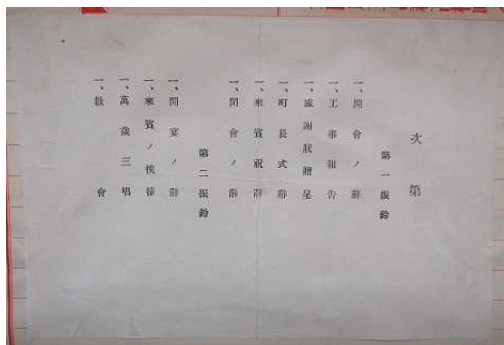 次第
第一振鈴
一、開會ノ辭
一、工事報告
一、感謝狀贈呈
一、町長式辭
一、來賓祝辭
一、閉會ノ辭
第二振鈴
一、開宴ノ辭
一、來賓ノ挨拶
一、萬歲三唱
一、散會